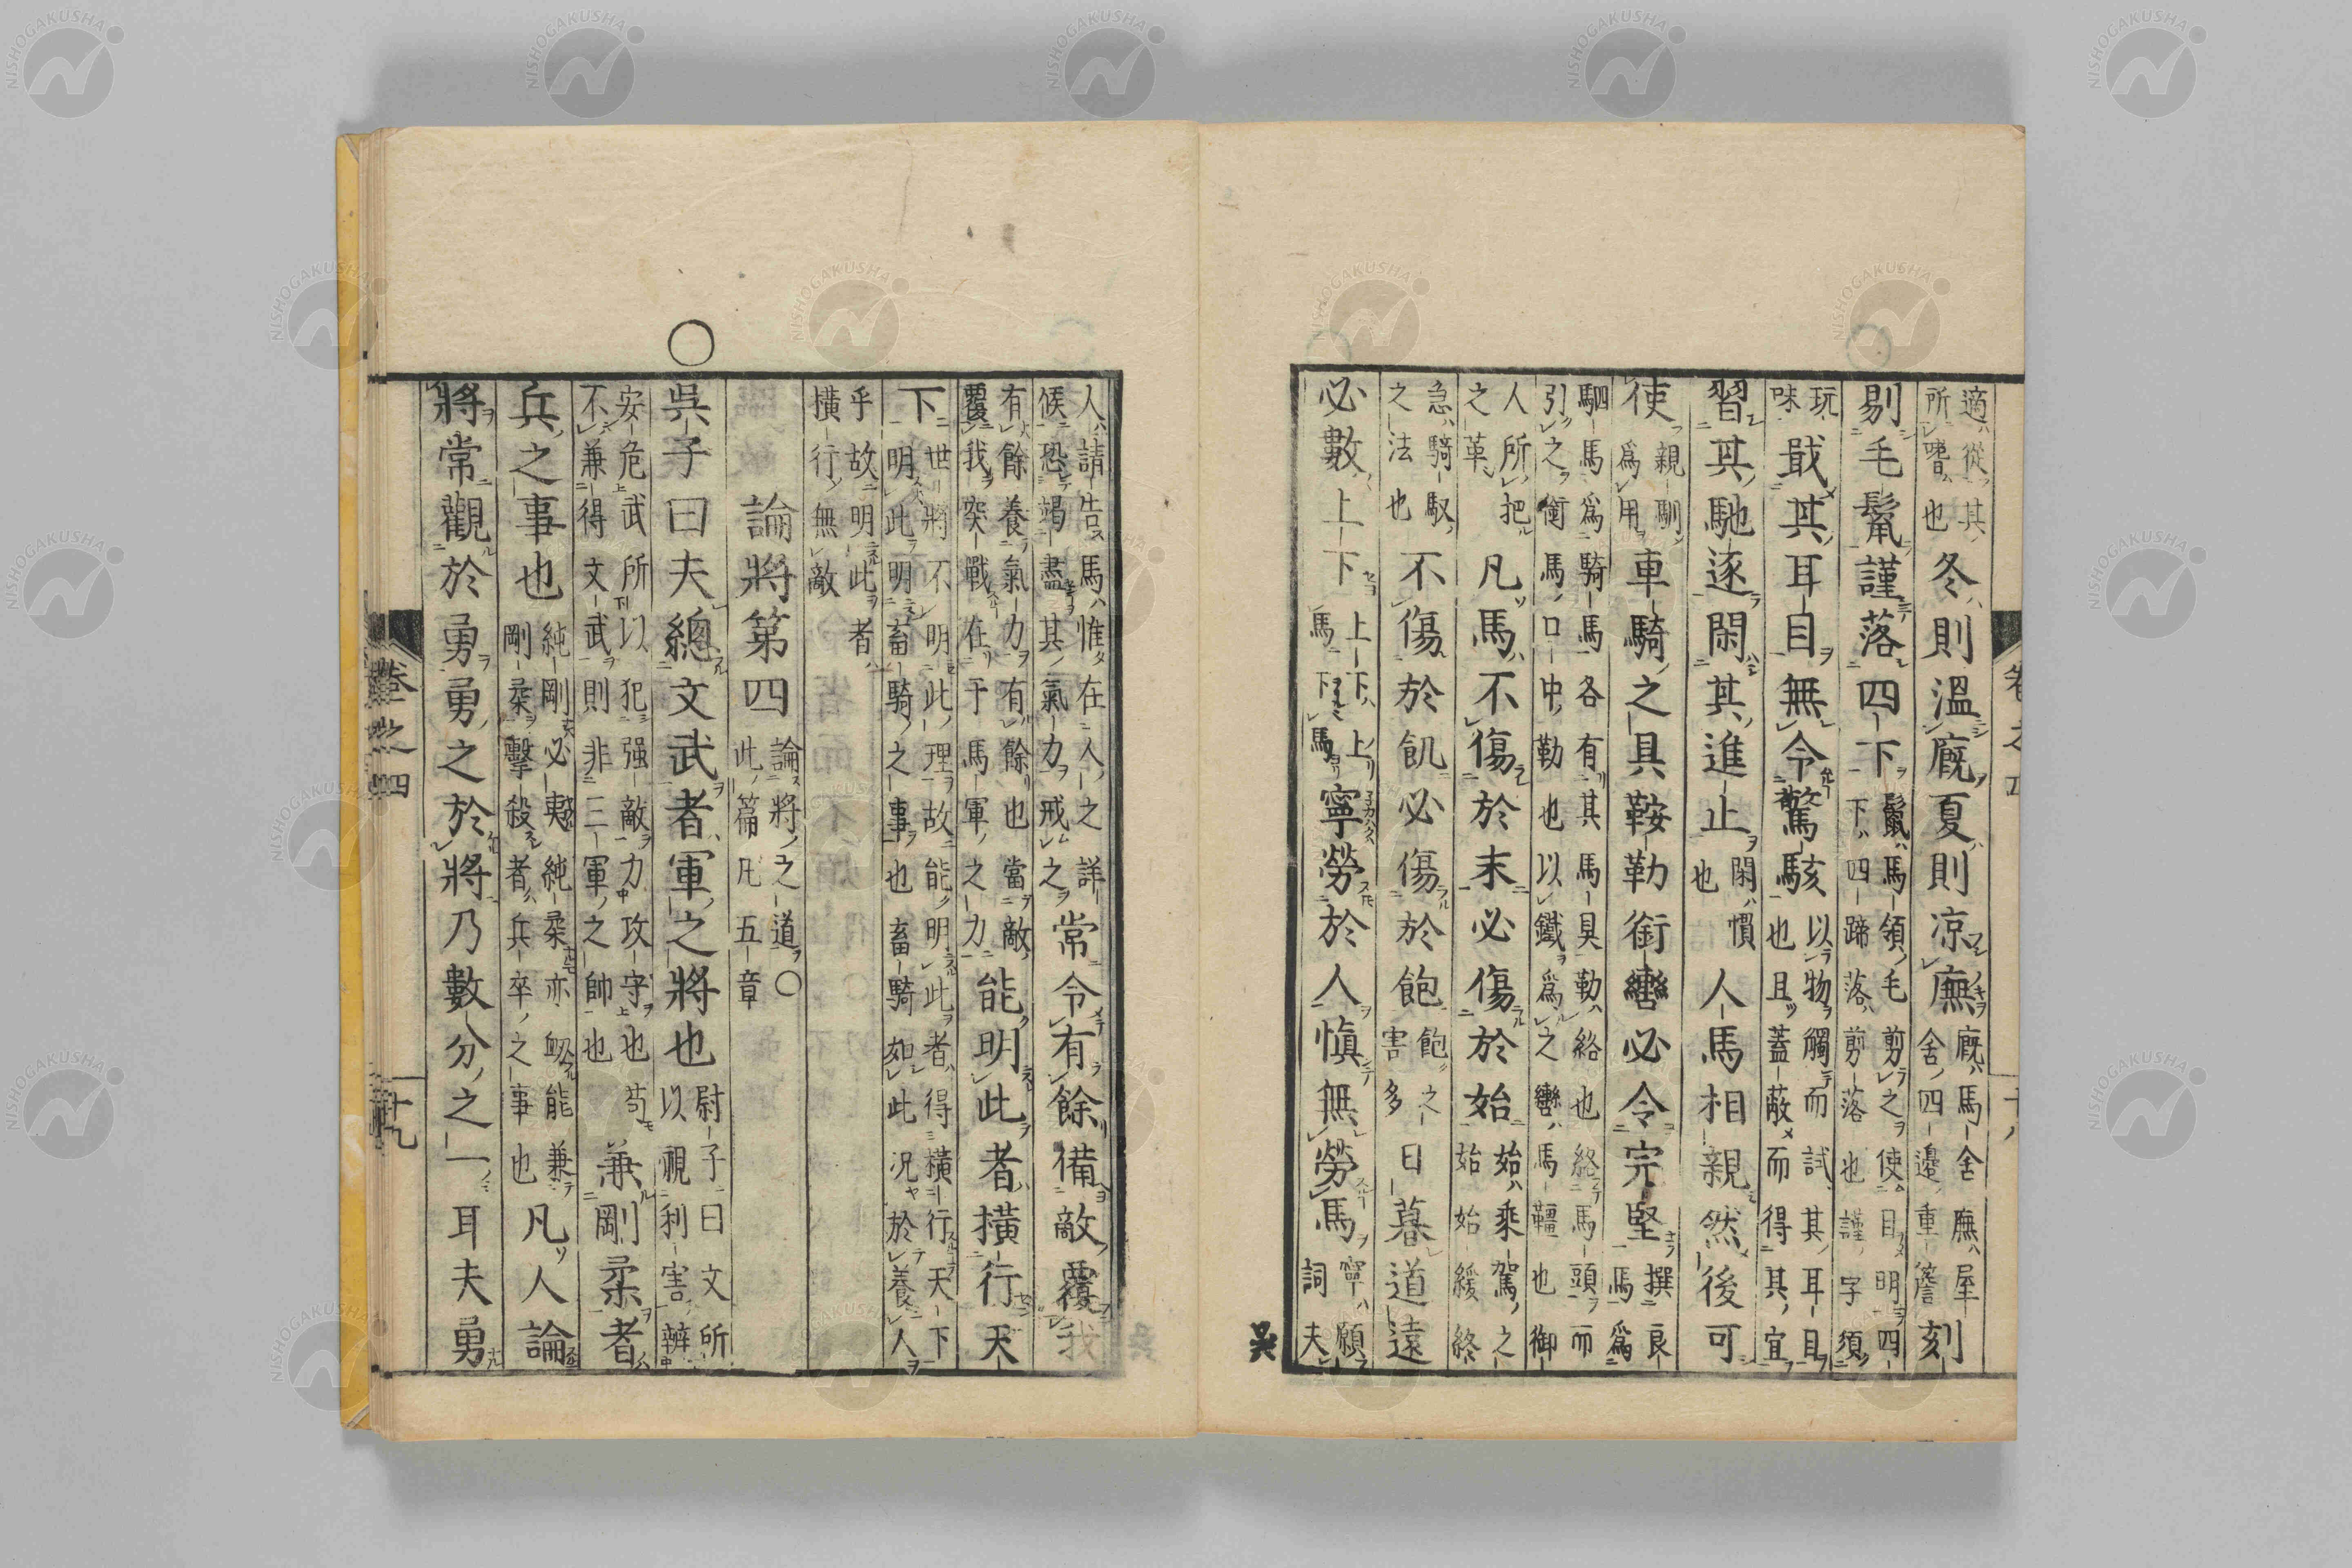 適從其
所嗜也
冬則溫廐夏則凉廡
廐馬舍廡屋
舍四邊重簷
刻
剔毛鬣謹落四下
鬣馬領毛剪之使目明四
下四蹄落剪落也謹字須
玩
味
戢其耳目無令驚駭
以物觸而試其耳目
也且蓋蔽而得其宜
習其馳逐閑其進止
閑慣
也
人馬相親然後可
使
親馴
爲用
車騎之具鞍勒銜轡必令完堅
撰良
馬爲
駟馬爲騎馬各有其馬具勒絡也絡馬頭而
引之銜馬口中勒也以鐵爲之轡馬韁也御
人所把
之革
凡馬不傷於末必傷於始
始乘駕之
始始緩終
急騎馭
之法也
不傷於飢必傷於飽
飽之
害多
日暮道遠
必數上下
上下上
馬下馬
寧勞於人慎無勞馬
寧願
詞夫
吳
人請告馬惟在人之詳
候恐竭盡其氣力戒之
常令有餘備敵覆我
有餘養氣力有餘也當敵
覆我突戰在于馬軍之力
能明此者橫行天
下
世將不明此理故能明此者得橫行天下
明此明畜騎之事也畜騎如此况於養人
乎故明此者
橫行無敵
論將第四
論將之道〇
此篇凡五章
〇
吳子曰夫總文武者軍之將也
尉子曰文所
以視利害辨
安危武所以犯强敵力攻守也苟
不兼得文武則非三軍之帥也
兼剛柔者
兵之事也
純剛必夷純柔亦能兼
剛柔擊殺者兵卒之事也
凡人論
將常觀於勇勇之於將乃數分之一耳夫勇
卷之四
十九